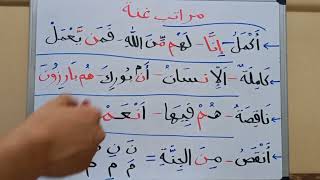 مراتب غنة
أَكْمَلُ - إِنَّا - لَهُم مِّنَ اللهِ - فَمَن يَّعْمَلْ
كَامِلَةٌ - الْإِنسَانَ - أَن بُورِكَ - هُم بَارِزُونَ
نَاقِصَةٌ - هُمْ فِيهَا - أَنْعَمْ
أَنْقَصُ - مِنَ الْجِنَّةِ = نَ نِ نُ
مَ مِ مُ